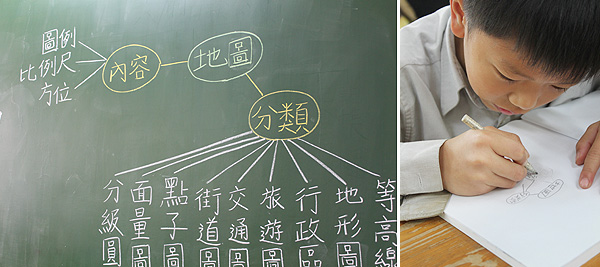 圖例
比例尺
方位
內容
地圖
分類
分級圓
面量圖
點子圖
街道圖
交通圖
旅遊圖
行政區
地形圖
等高線